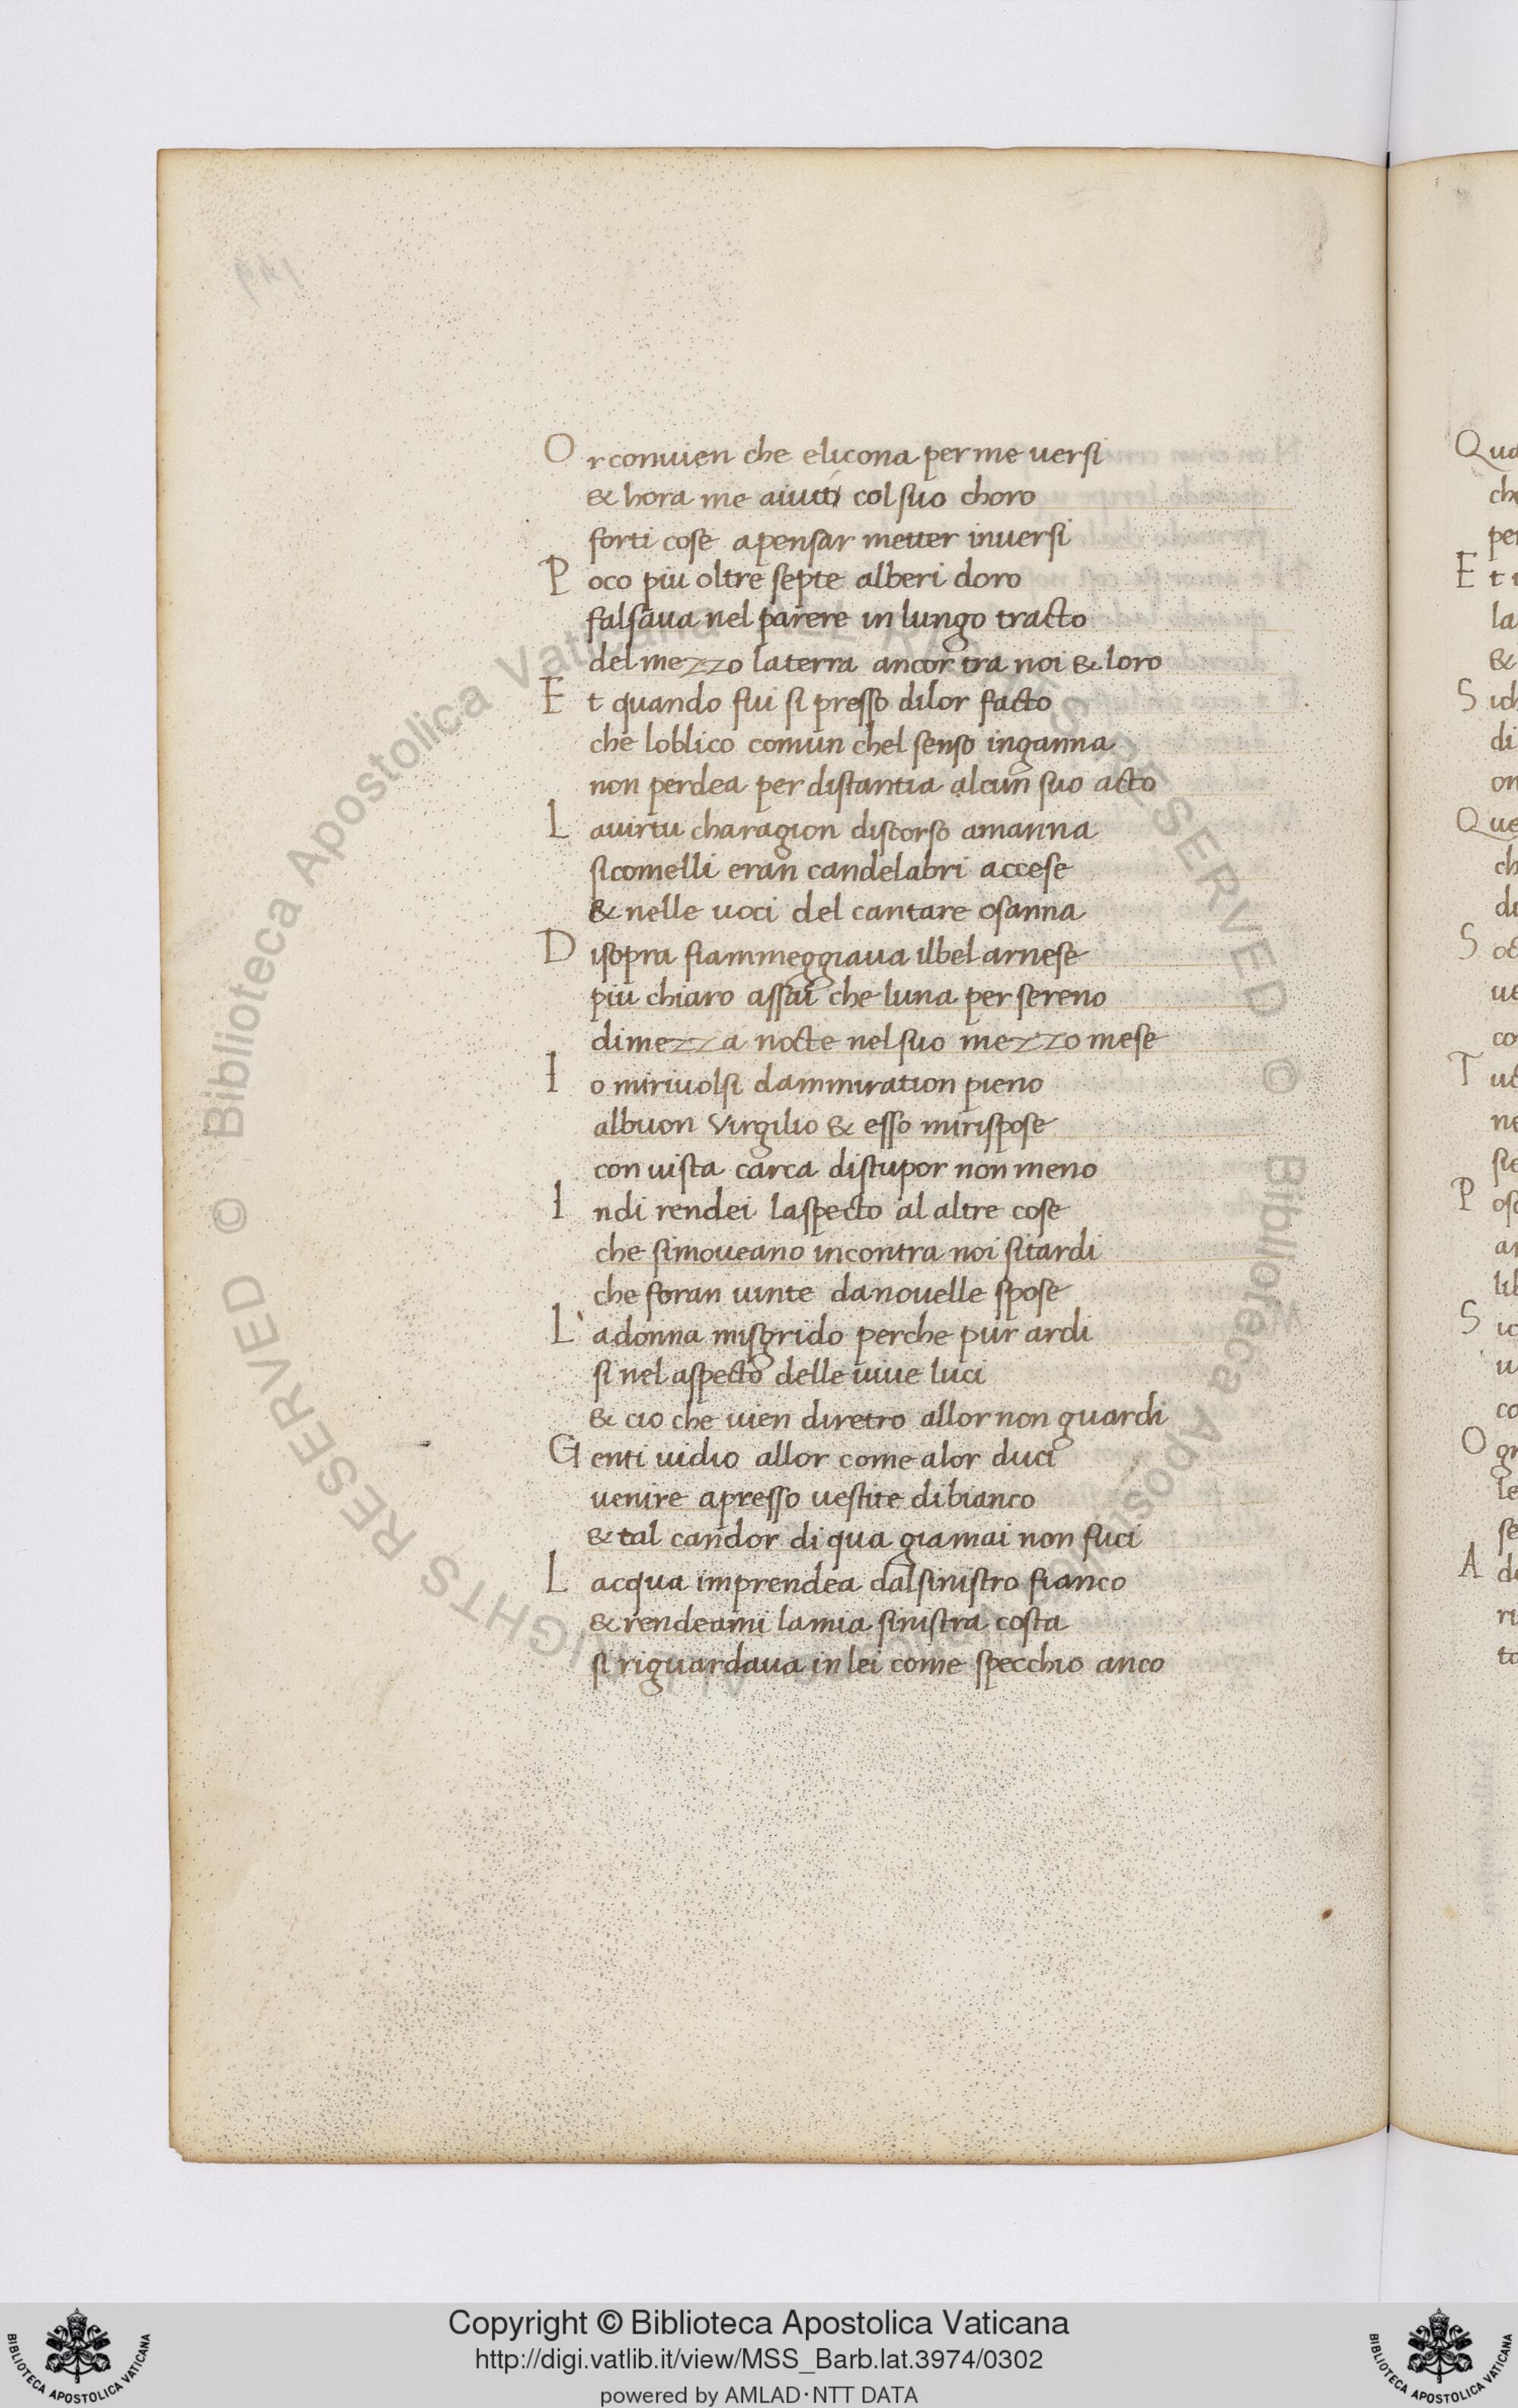 O r convien che elicona per me versi
& hora me aiuti col suo choro
forti cose apensar metter inversi
P oco piu oltre septe alberi doro
falsava nel parere in lungo tracto
del mezzo laterra ancor tra noi & loro
E t quando fui si presso dilor facto
che loblico comun chel senso inganna
non perdea per distantia alcun suo acto
L avirtu charagion discorso amanna
sicomelli eran candelabri accese
& nelle voci del cantare osanna
D isopra fiammeggiava ilbel arnese
piu chiaro assai che luna per sereno
dimezza nocte nel suo mezzo mese
I o mirivolsi dammiration pieno
albuon Virgilio & esso mirispose
con vista carca distupor non meno
I ndi rendei laspecto al altre cose
che simoveano incontra noi sitardi
che foran vinte danovelle spose
L adonna misgrido perche pur ardi
si nel aspecto delle vive luci
& cio che vien diretro allor non guardi
G enti vidio allor come alor duci
venire apresso vestite dibianco
& tal candor di qua giamai non fuci
L acqua imprendea dalsinistro fianco
& rendeami lamia sinistra costa
si riguardava in lei come specchio anco
Copyright © Biblioteca Apostolica Vaticana
http://digi.vatlib.it/view/MSS_Barb.lat.3974/0302
powered by AMLAD·NTT DATA